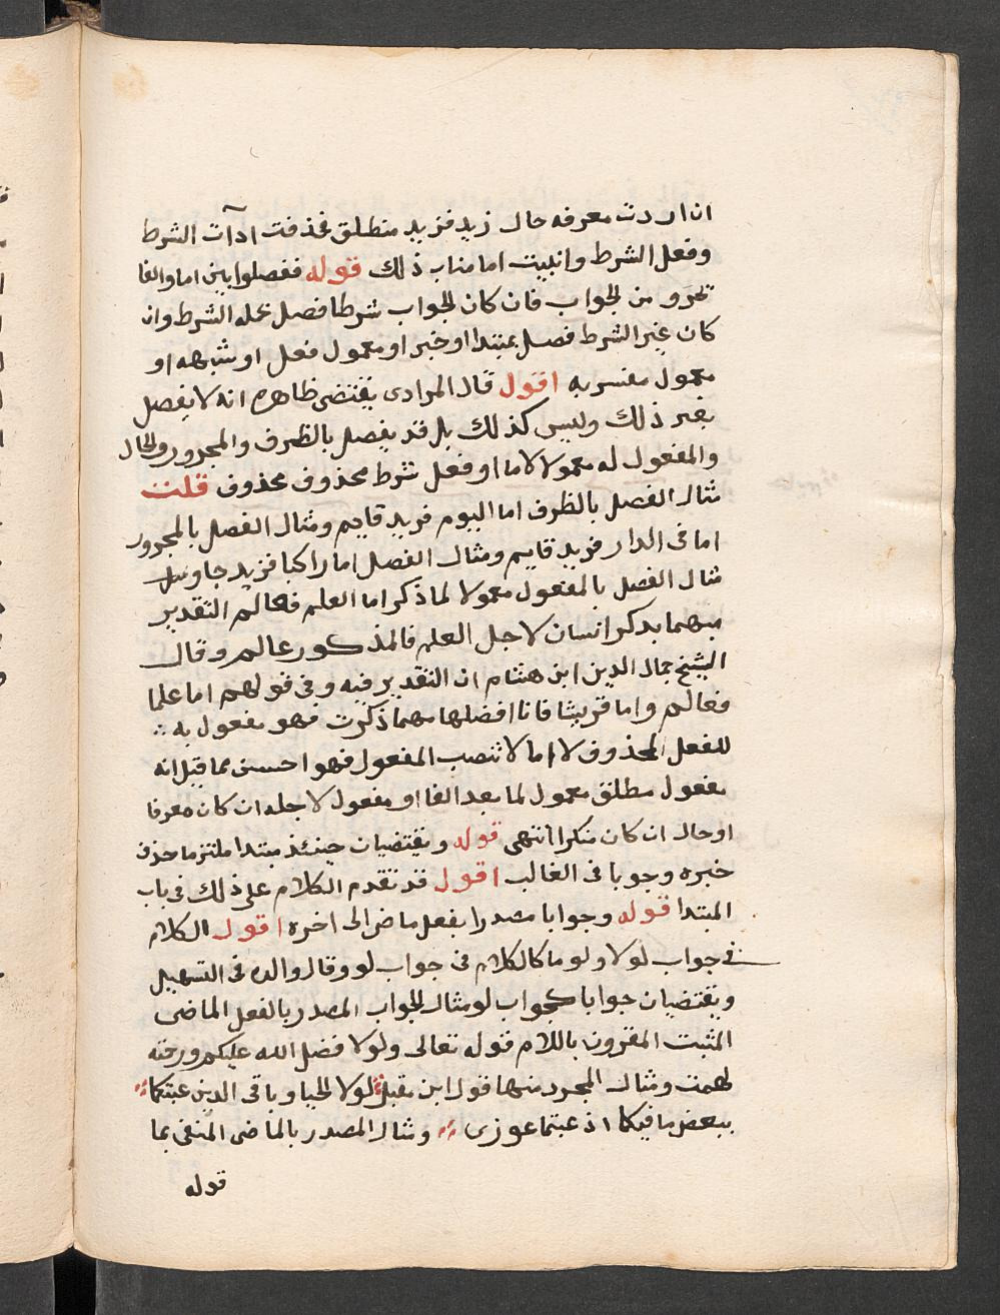 ان اردت معرفه حال زيد فزيد منطلق فحذفت ادآت الشرط
وفعل الشرط وانيبت اما مناب ذلك قوله ففصلوا بين اما والفا
بجزو من الجواب فان كان الجواب شرطا فصل بجمله الشرط وان
كان غير الشرط فصل بمبتدا او خبر او معمول فعل او شبهه او
معمول مفسر به اقول قال المرادى يقتضى ظاهره انه لا يفصل
بغير ذلك وليس كذلك بل قد يفصل بالظرف والمجرور والحال
والمفعول له معمولا لاما او فعل شرط محذوف محذوف قلت
مثال الفصل بالظرف اما اليوم فزيد قايم ومثال الفصل بالمجرور
اما فى الدار فزيد قايم ومثال الفصل اما راكبا فزيد جا
مثال الفصل بالمفعول معمولا لما ذكر اما العلم فعالم التقدير
مهما يذكر انسان لاجل العلم فالمذكور عالم وقال
الشيخ جمال الدين ابن هشام ان التقدير فيه وفى قولهم اما علما
فعالم واما قريشا فانا افضلها مهما ذكرت فهو مفعول به
للفعل المحذوف لا اما لا تنصب المفعول فهو احسن مما قيل انه
مفعول مطلق معمول لما بعد الفا او مفعول لاجله ان كان معرفا
او حال ان كان منكرا انتهى قوله ويقتضيان حينئذ مبتدا ملتزما حذف
خبره وجوبا فى الغالب اقول قد تقدم الكلام على ذلك فى باب
المبتدا قوله وجوابا مصدرا بفعل ماض الى اخره اقول الكلام
فى جواب لولا ولوما كالكلام فى جواب لو وقال والده فى التسهيل
ويقتضيان جوابا كجواب لو مثال الجواب المصدر بالفعل الماضى
المثبت المقرون باللام قوله تعالى ولولا فضل الله عليكم ورحمته
لهمت ومثال المجرد منها قول ابن مقبل لولا الحيا وباقى الدين عبتكما
ببعض ما فيكما اذ عبتما عوزى ومثال المصدر بالماضى المنفى بما
قوله